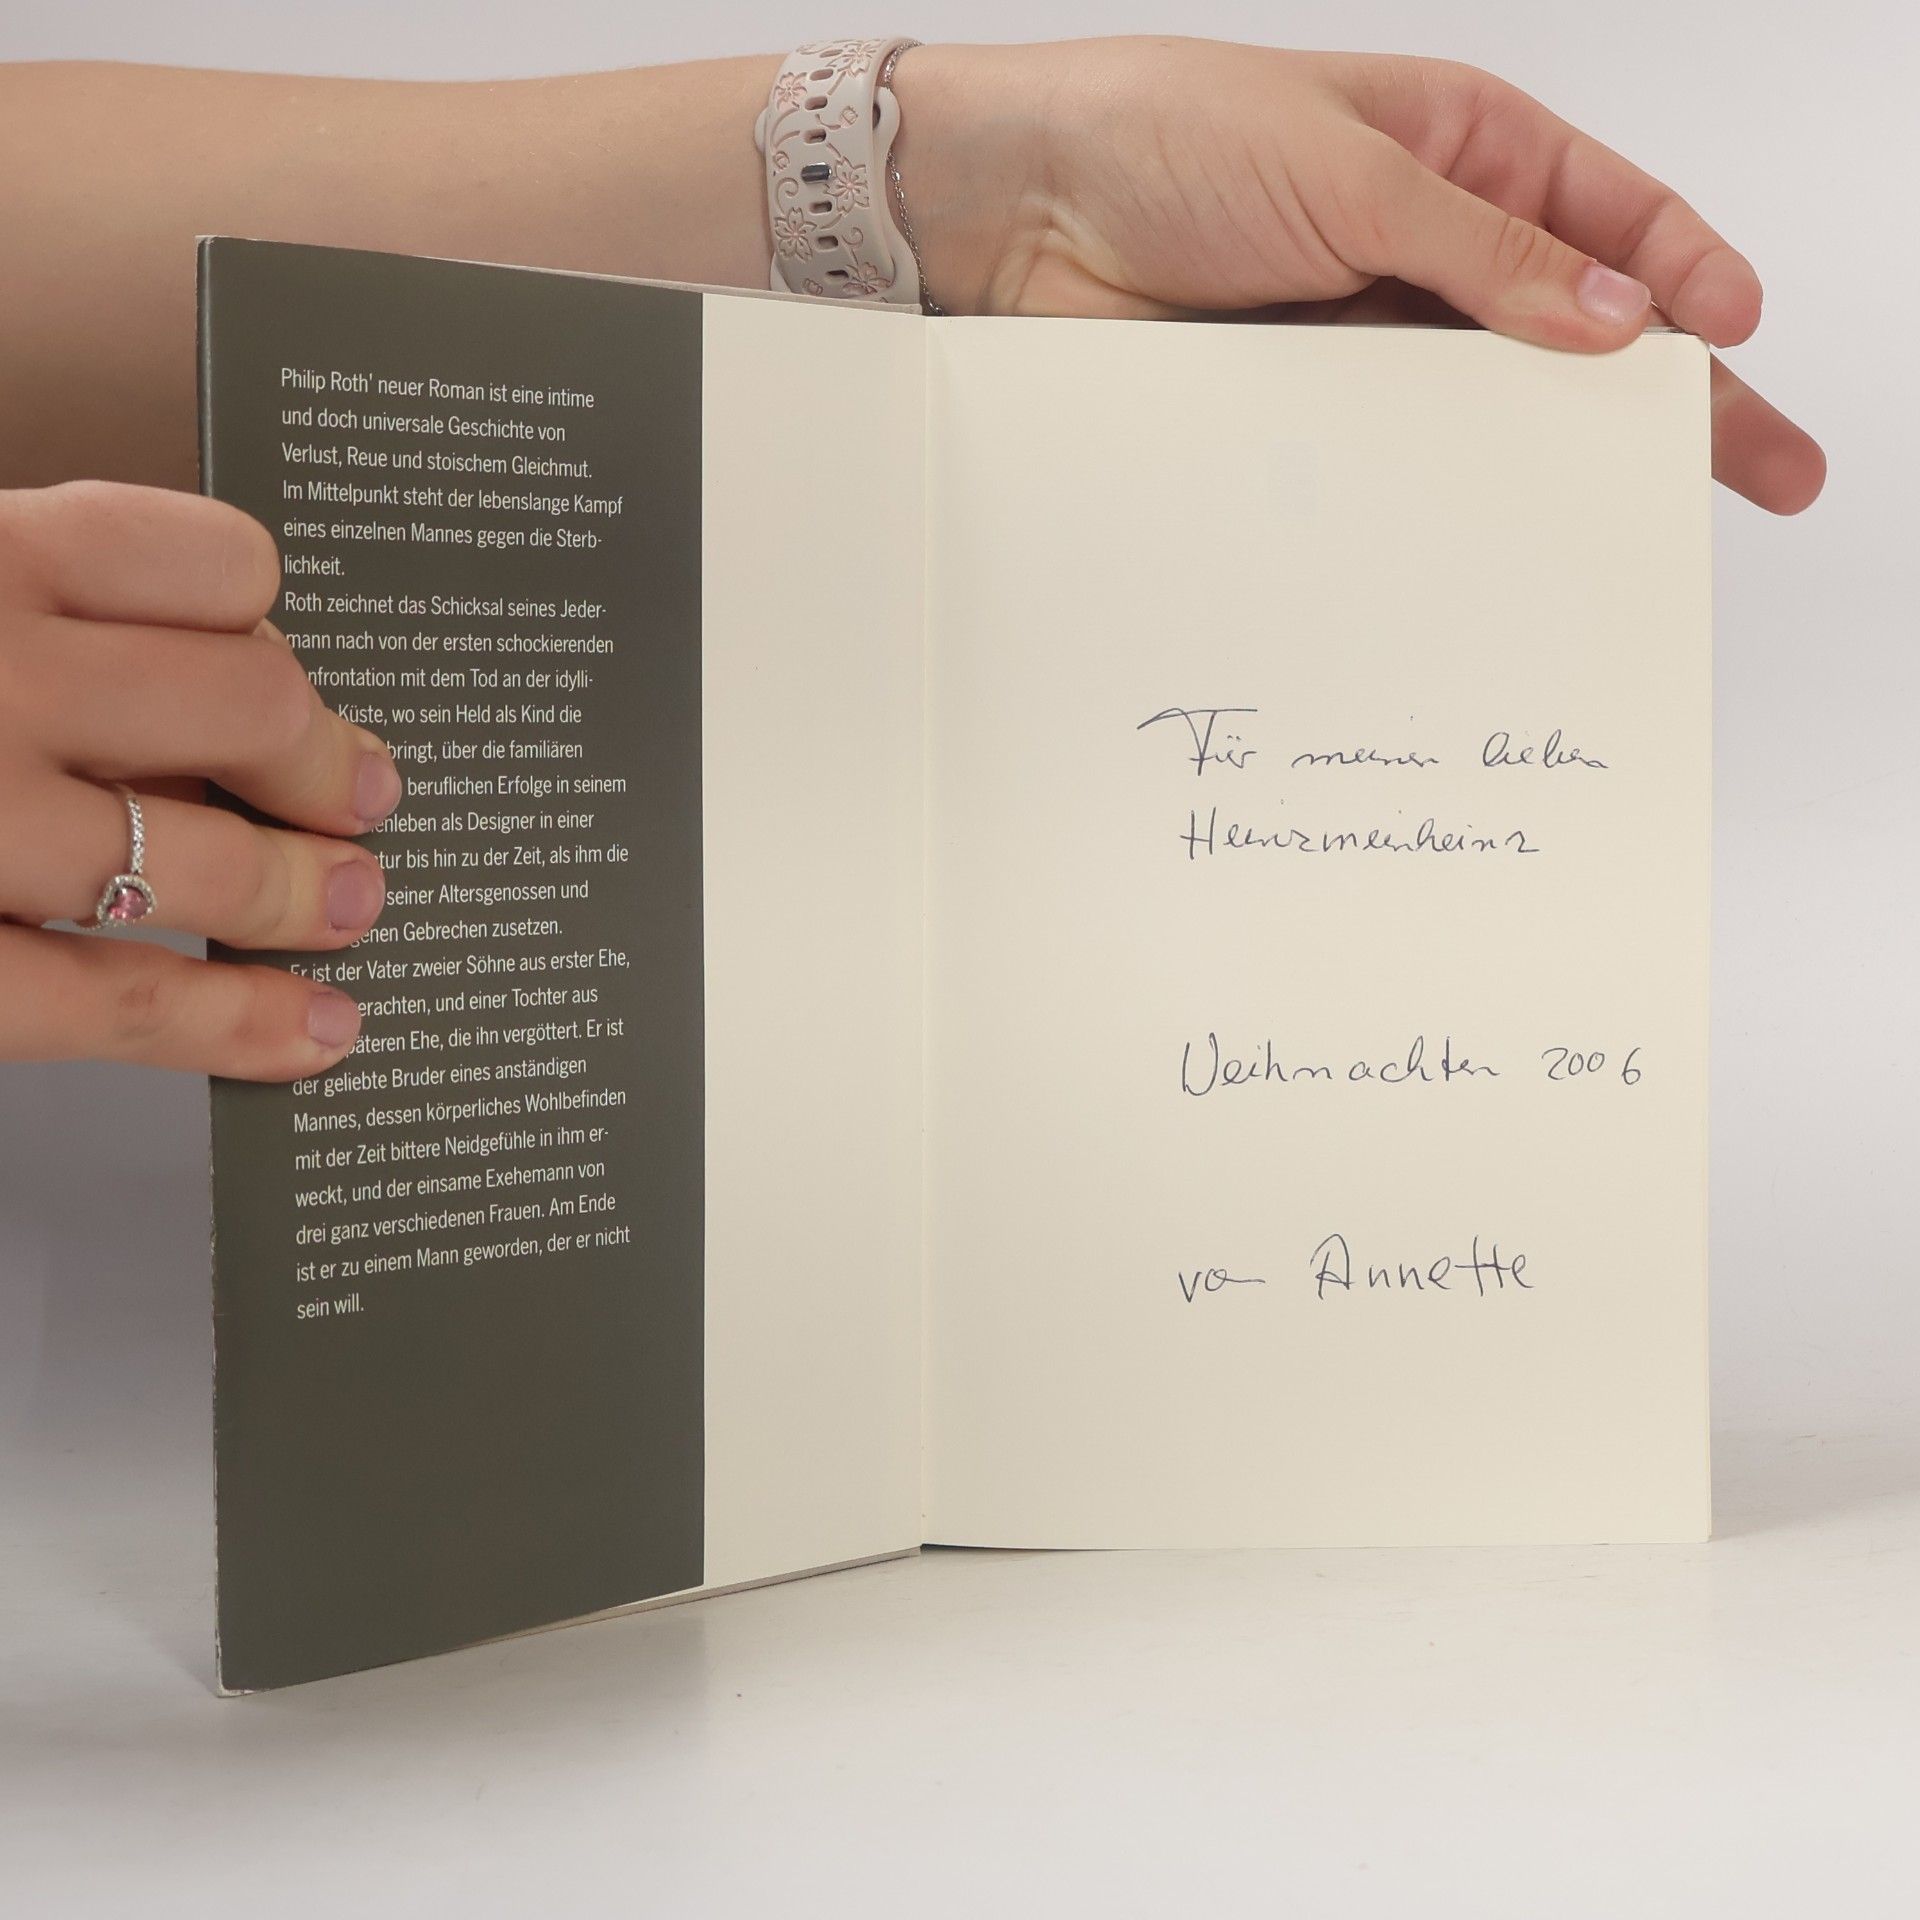 Philip Roth' neuer Roman ist eine intime
und doch universale Geschichte von
Verlust, Reue und stoischem Gleichmut.
Im Mittelpunkt steht der lebenslange Kampf
eines einzelnen Mannes gegen die Sterb-
lichkeit.
Roth zeichnet das Schicksal seines Jeder-
mann nach von der ersten schockierenden
nfrontation mit dem Tod an der idylli-
Küste, wo sein Held als Kind die
bringt, über die familiären
beruflichen Erfolge in seinem
enleben als Designer in einer
tur bis hin zu der Zeit, als ihm die
seiner Altersgenossen und
genen Gebrechen zusetzen.
Er ist der Vater zweier Söhne aus erster Ehe,
erachten, und einer Tochter aus
päteren Ehe, die ihn vergöttert. Er ist
der geliebte Bruder eines anständigen
Mannes, dessen körperliches Wohlbefinden
mit der Zeit bittere Neidgefühle in ihm er-
weckt, und der einsame Exehemann von
drei ganz verschiedenen Frauen. Am Ende
ist er zu einem Mann geworden, der er nicht
sein will.
Für meinen lieben
Heinzmeinheinz
Weihnachten 2006
von Annette